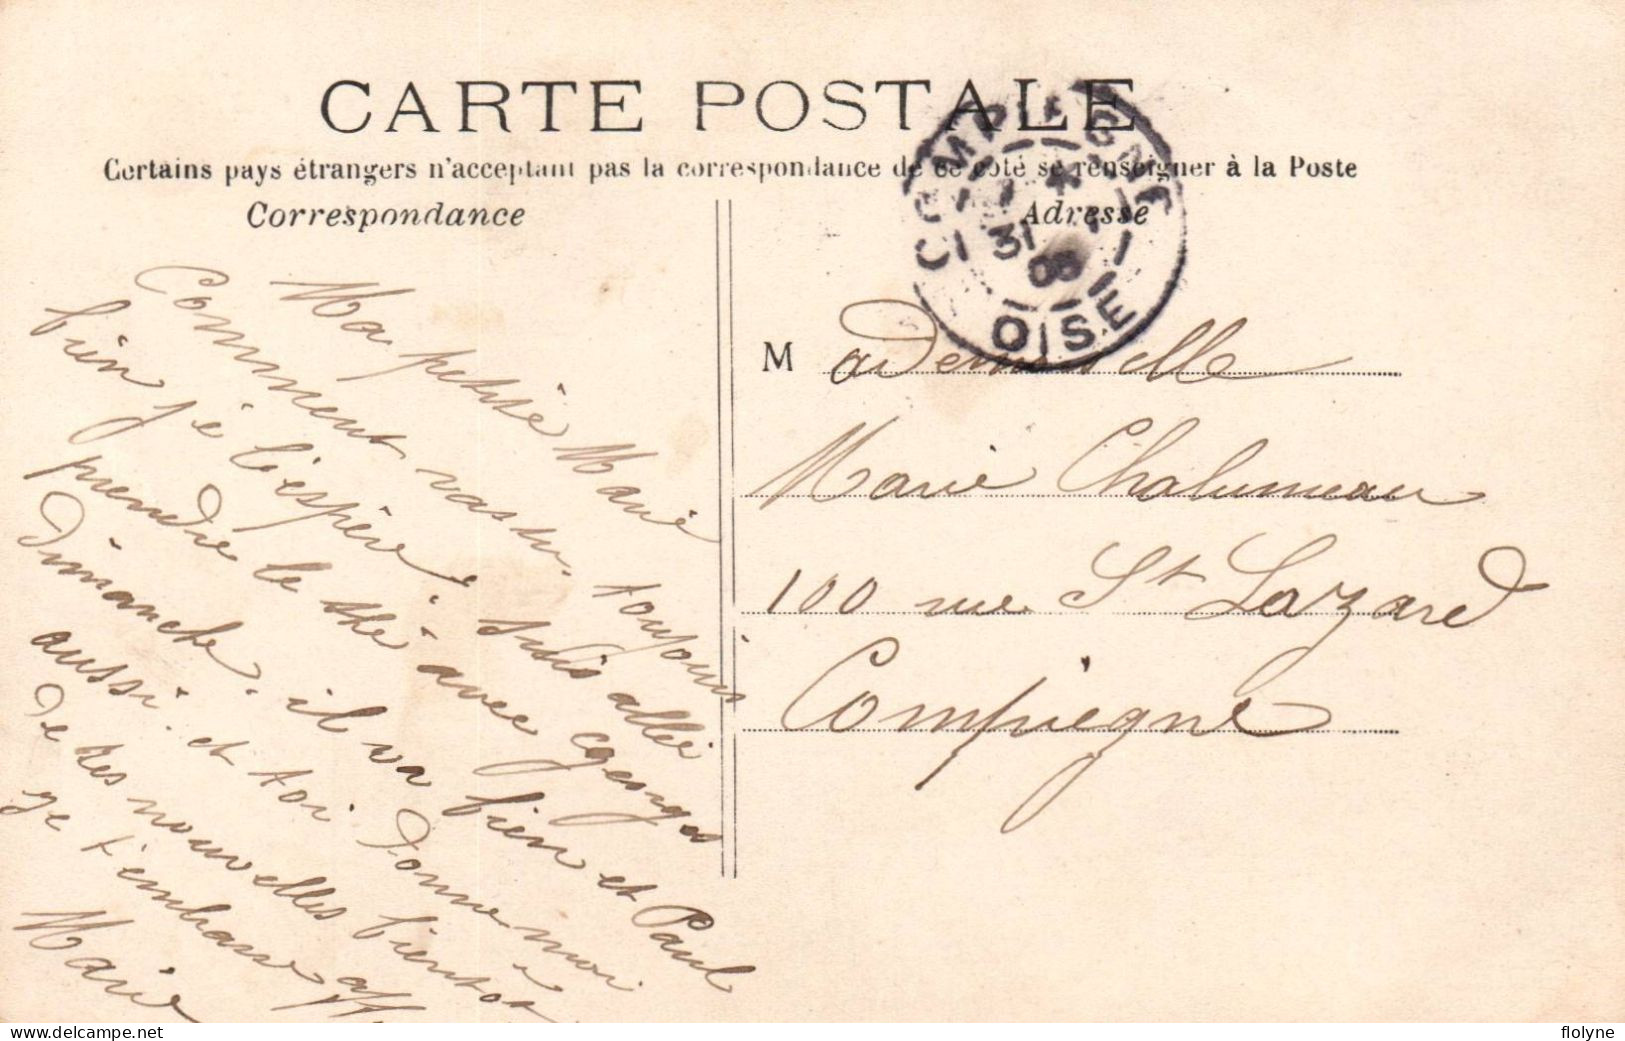 CARTE POSTALE
Certains pays étrangers n'acceptant pas la correspondance de ce côté se renseigner à la Poste
Correspondance
Adresse
COMPIEGNE
31
08
OISE
Ma petite Marie
Comment vas tu. toujours
bien je l'espère. suis allée
prendre le thé avec Georges
Dimanche. il va bien et Paul
aussi. et toi. Donne moi
de tes nouvelles bientôt
Je t'embrasse aff
Marie
Mademoiselle
Marie Chalumeau
100 rue St Lazard
Compiègne
delcampe.net
flolyne